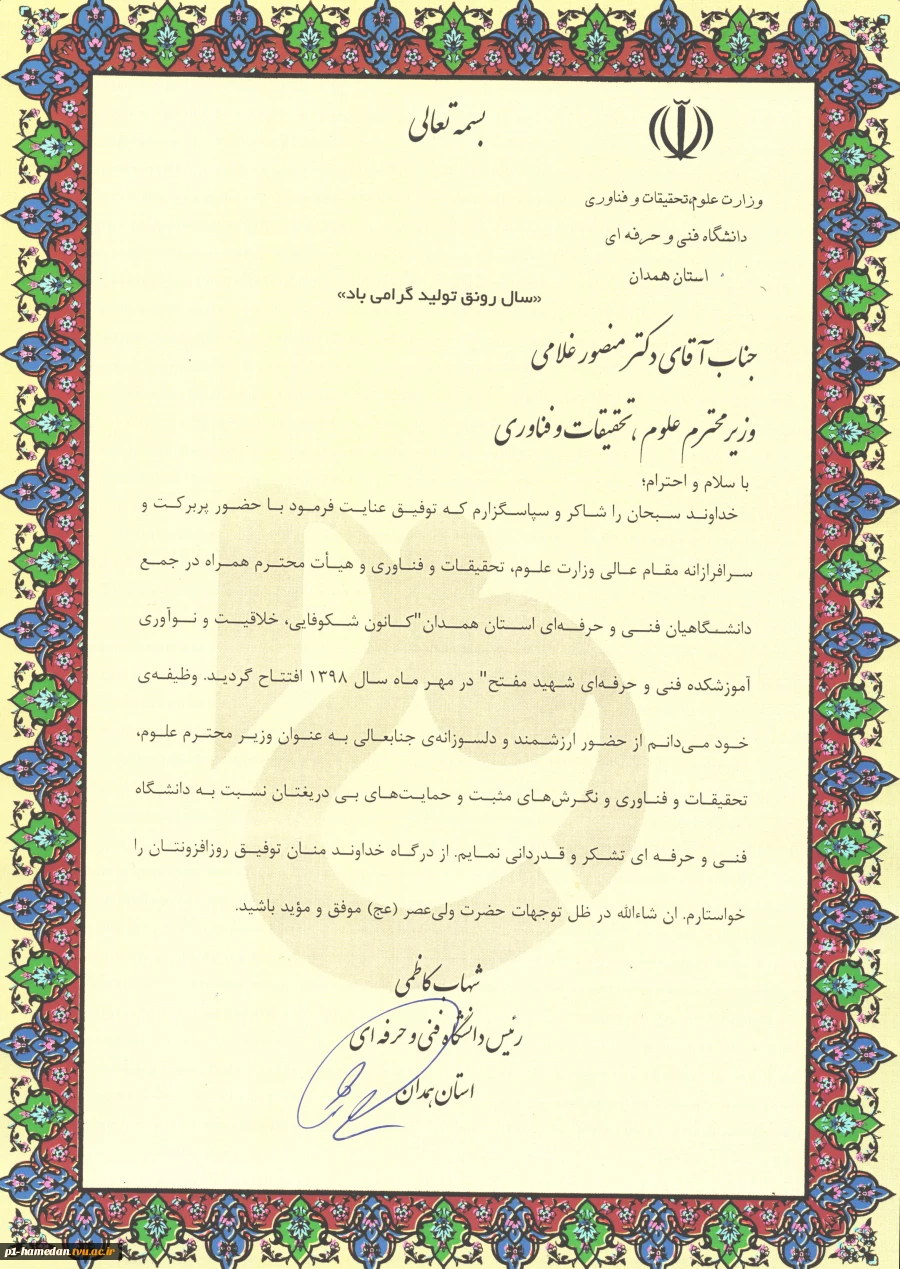 بسمه تعالی
وزارت علوم،تحقیقات و فناوری
دانشگاه فنی و حرفه ای
استان همدان
«سال رونق تولید گرامی باد»
جناب آقای دکتر منصور غلامی
وزیر محترم علوم ، تحقیقات و فناوری
با سلام و احترام؛
خداوند سبحان را شاکر و سپاسگزارم که توفیق عنایت فرمود با حضور پربرکت و
سرافرازانه مقام عالی وزارت علوم، تحقیقات و فناوری و هیأت محترم همراه در جمع
دانشگاهیان فنی و حرفه‌ای استان همدان"کانون شکوفایی، خلاقیت و نوآوری
آموزشکده فنی و حرفه‌ای شهید مفتح" در مهر ماه سال ۱۳۹۸ افتتاح گردید. وظیفه‌ی
خود می‌دانم از حضور ارزشمند و دلسوزانه‌ی جنابعالی به عنوان وزیر محترم علوم،
تحقیقات و فناوری و نگرش‌های مثبت و حمایت‌های بی دریغتان نسبت به دانشگاه
فنی و حرفه ای تشکر و قدردانی نمایم. از درگاه خداوند منان توفیق روزافزونتان را
خواستارم. ان شاءالله در ظل توجهات حضرت ولی‌عصر (عج) موفق و مؤید باشید.
شهاب کاظمی
رئیس دانشگاه فنی و حرفه ای
استان همدان
p1-hamedan.tvu.ac.ir